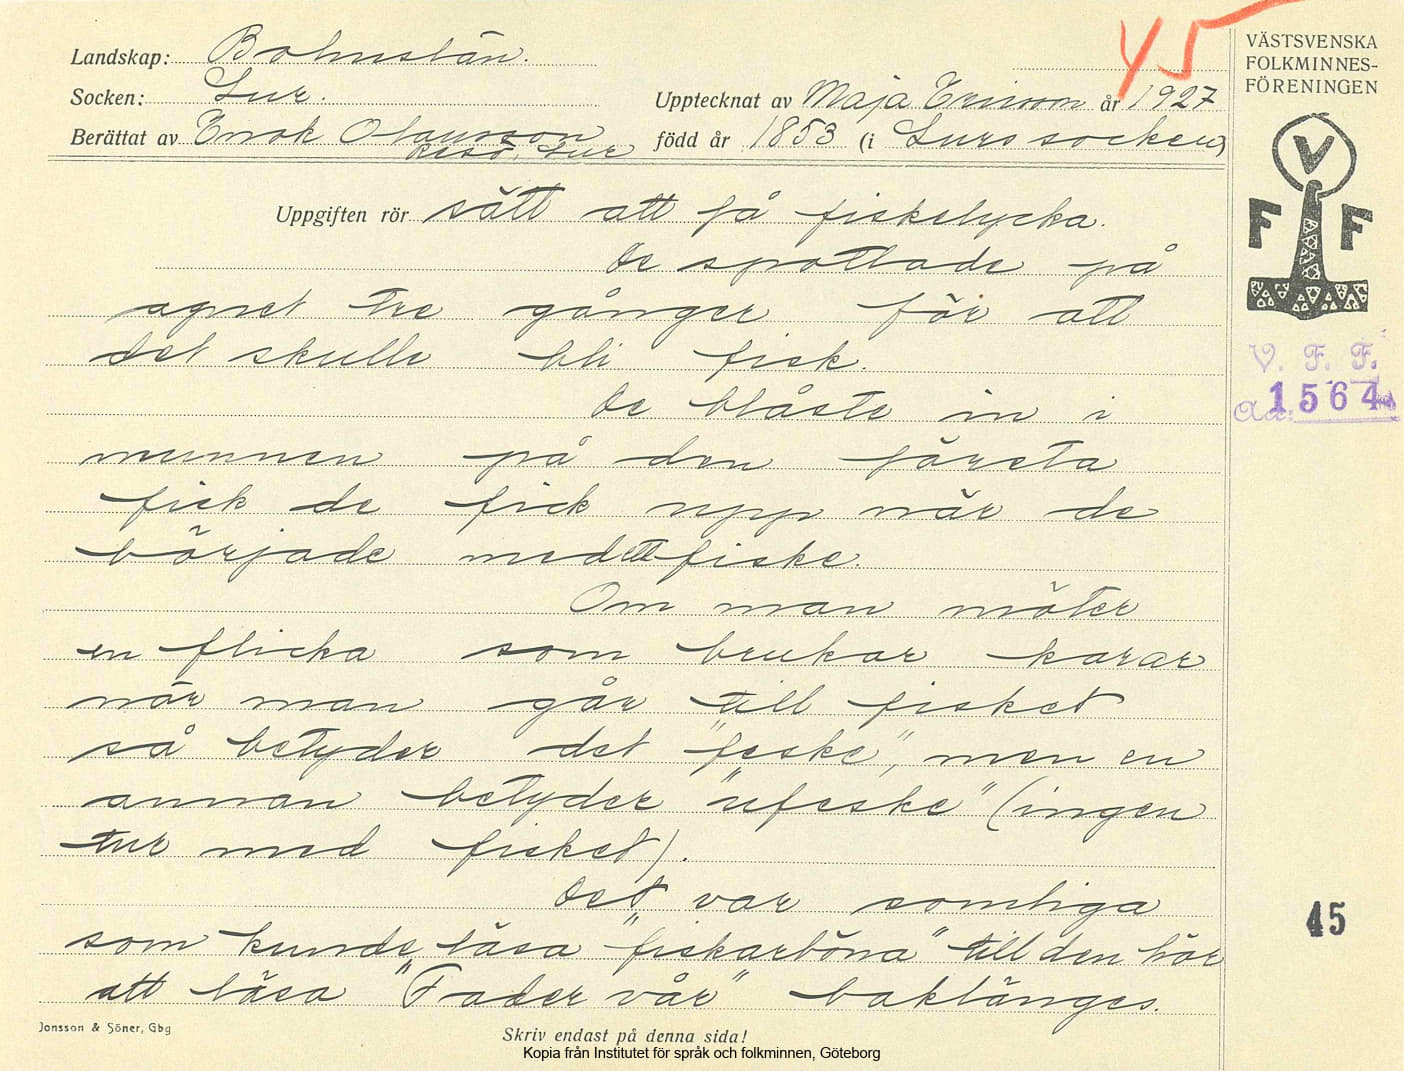 45
Landskap: Bohuslän.
Socken: Lur.
Upptecknat av Maja Ericson år 1927
Berättat av Enok Olausson
Resö, Lur
född år 1853 (i Lurs socken)
VÄSTSVENSKA
FOLKMINNES-
FÖRENINGEN
V
F F
V. F. F.
Acc. 1564
Uppgiften rör sätt att få fiskelycka.
De spottade på
agnet tre gånger för att
det skulle bli fisk.
De blåste in i
munnen på den första
fisk de fick upp när de
började med ett fiske.
Om man möter
en flicka som brukar karar
när man går till fisket
så betyder det "feske", men en
annan betyder "ufeske" (ingen
tur med fisket).
Det var somliga
som kunde läsa "fiskarböna" till den hör
att läsa "Fader vår" baklänges.
45
Jonsson & Söner, Gbg
Skriv endast på denna sida!
Kopia från Institutet för språk och folkminnen, Göteborg